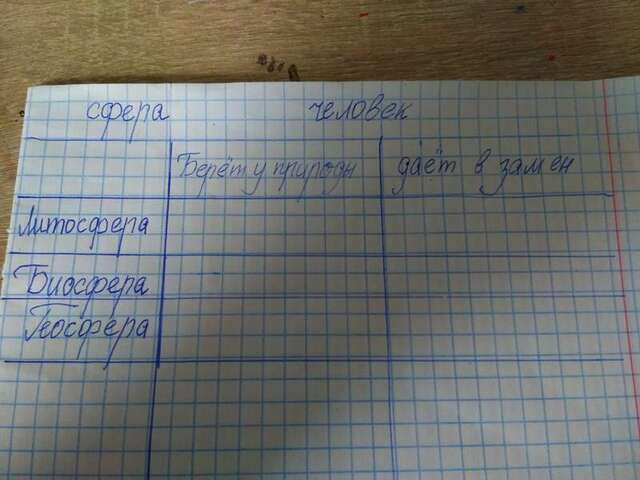 сфера человек
Берёт у природы даёт в замен
Литосфера
Биосфера
Геосфера